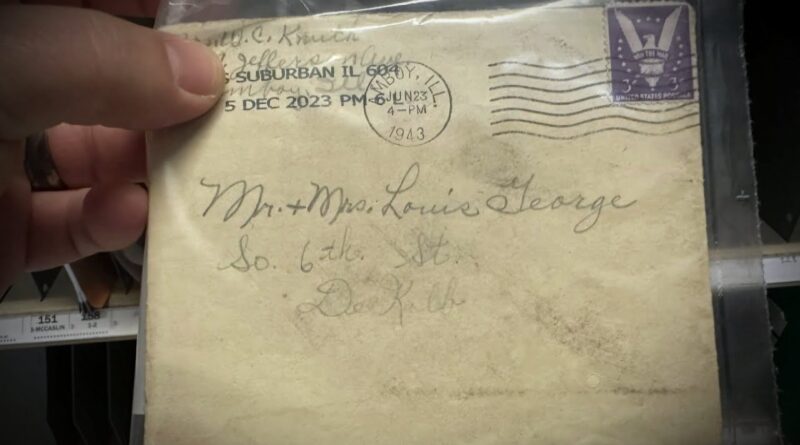 C. Knuth
Jeffers
S SUBURBAN IL 604
5 DEC 2023 PM 6 L
MBOY, ILL.
JUN 23
4-PM
1943
WIN THE WAR
3 3
UNITED STATES POSTAGE
Mr. + Mrs. Louis George
So. 6th St.
De Kalb
151
3-MCCASLIN
158